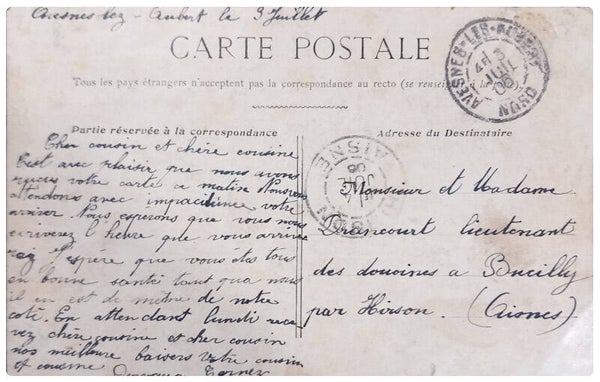 Avesnes-lez-Aubert le 3 Juillet
CARTE POSTALE
Tous les pays étrangers n'acceptent pas la correspondance au recto (se renseigner à la
AVESNES-LES-AUBERT
3
JUIL
06
NORD
Partie réservée à la correspondance
Cher cousin et chère cousine
C'est avec plaisir que nous avons
reçues votre carte ce matin Nous vous
attendons avec impacience votre
arriver. Nous esperons que vous nous
ecriverez l'heure que vous arrive
rez J'espère que vous êtes tous
en bonne santé tant qua nous
il en est de même de notre
coté. En attendant lundi rece
vez chère cousine et cher cousin
nos meilleure baisers votre cousin
et cousine
Adresse du Destinataire
AISNE
Monsieur et Madame
Drancourt lieutenant
des douaines a Bucilly
par Hirson. (Aisnes)